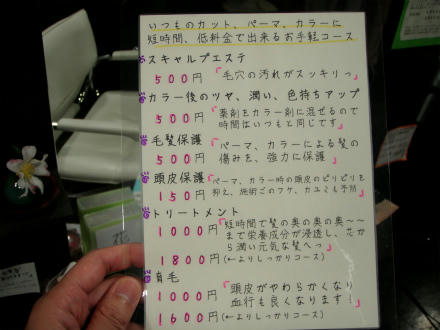 いつものカット、パーマ、カラーに
短時間、低料金で出来るお手軽コース
スキャルプエステ
500円 「毛穴の汚れがスッキリっ」
カラー後のツヤ、潤い、色持ちアップ
500円 「薬剤をカラー剤に混ぜるので
時間はいつもと同じです」
毛髪保護 「パーマ、カラーによる髪の
500円 傷みを、強力に保護」
頭皮保護 「パーマ、カラー時の頭皮のピリピリを
150円 抑え、施術ごのフケ、カユミも予防」
トリートメント
1000円 「短時間で髪の奥の奥の奥〜〜
まで栄養成分が浸透し、芯か
ら潤い元気な髪へっ」
1800円 (←よりしっかりコース)
育毛
1000円 「頭皮がやわらかくなり
血行も良くなります!」
1600円 (←よりしっかりコース)